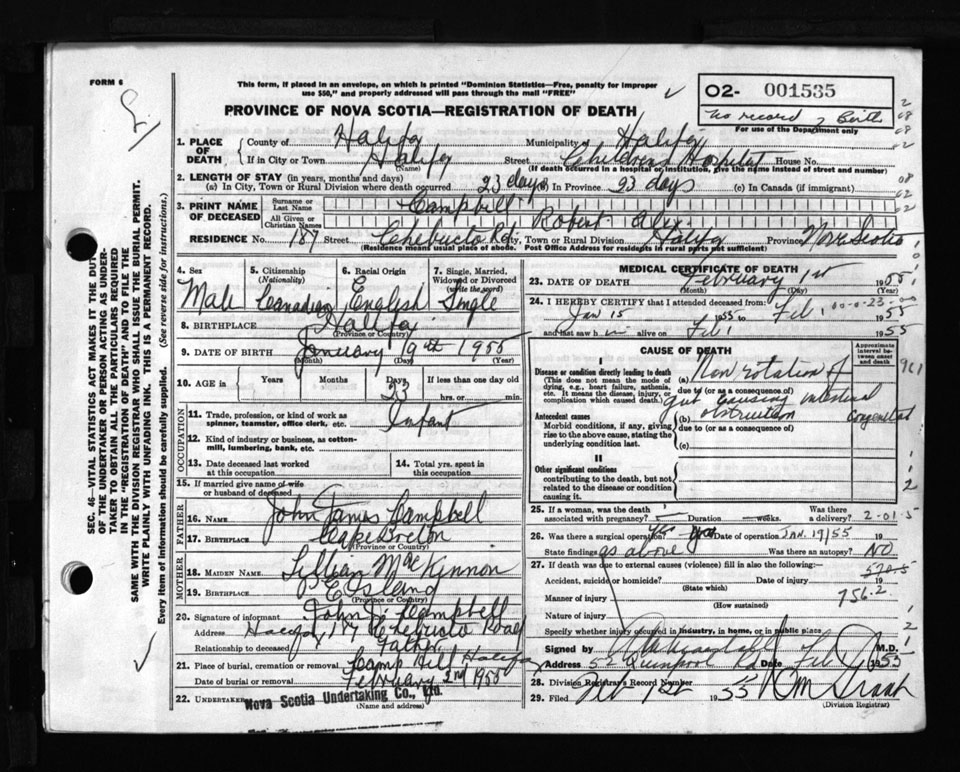 FORM 6
This form, if placed in an envelope, on which is printed "Dominion Statistics—Free, penalty for improper
use $50," and properly addressed will pass through the mail "FREE"
PROVINCE OF NOVA SCOTIA—REGISTRATION OF DEATH
O2- 001535
No record of Birth
For use of the Department only
1. PLACE OF DEATH
County of Halifax Municipality of Halifax
If in City or Town Halifax Street Childrens Hospital House No.
(Name) (If death occurred in a hospital or institution, give the name instead of street and number)
2. LENGTH OF STAY (in years, months and days)
(a) In City, Town or Rural Division where death occurred 23 days (b) In Province 23 days (c) In Canada (if immigrant)
3. PRINT NAME OF DECEASED
Surname or Last Name Campbell
All Given or Christian Names Robert Alex.
RESIDENCE No. 189 Street Chebucto Rd. City, Town or Rural Division Halifax Province Nova Scotia
(Residence means usual place of abode. Post Office Address for residents in rural parts not sufficient)
4. Sex
Male
5. Citizenship (Nationality)
Canadian
6. Racial Origin
English
7. Single, Married, Widowed or Divorced (write the word)
Single
8. BIRTHPLACE Halifax
(Province or Country)
9. DATE OF BIRTH January 9th 1955
(Month) (Day) (Year)
10. AGE in Years Months Days 23 If less than one day old
hrs. or min.
OCCUPATION
11. Trade, profession, or kind of work as spinner, teamster, office clerk, etc. Infant
12. Kind of industry or business, as cotton-mill, lumbering, bank, etc.
13. Date deceased last worked at this occupation
14. Total yrs. spent in this occupation
15. If married give name of wife or husband of deceased
FATHER
16. Name John James Campbell
17. Birthplace Cape Breton
(Province or Country)
MOTHER
18. MAIDEN NAME Lillian MacKinnon
19. BIRTHPLACE P E Island
(Province or Country)
20. Signature of informant John J. Campbell
Address Halifax, 189 Chebucto Road
Relationship to deceased Father
21. Place of burial, cremation or removal Camp Hill Halifax
Date of burial or removal February 2nd 1955
22. UNDERTAKER Nova Scotia Undertaking Co., Ltd.
(Name and address)
MEDICAL CERTIFICATE OF DEATH
23. DATE OF DEATH February 1st 1955
(Month) (Day) (Year)
24. I HEREBY CERTIFY that I attended deceased from:
Jan 15 1955 to Feb 1 1955
and last saw h im alive on Feb 1 1955
CAUSE OF DEATH
Approximate interval between onset and death
I
Disease or condition directly leading to death
(This does not mean the mode of dying, e.g., heart failure, asthenia, etc. It means the disease, injury, or complication which caused death.)
(a) Non rotation of
due to (or as a consequence of)
gut causing intestinal
Antecedent causes
Morbid conditions, if any, giving rise to the above cause, stating the underlying condition last.
(b) obstruction congenital
due to (or as a consequence of)
(c)
II
Other significant conditions contributing to the death, but not related to the disease or condition causing it.
25. If a woman, was the death associated with pregnancy? Duration weeks. Was there a delivery? 2-01-5
26. Was there a surgical operation? yes Date of operation JAN. 19/55
State findings as above Was there an autopsy? NO
27. If death was due to external causes (violence) fill in also the following:-
Accident, suicide or homicide? Date of injury 19
(State which)
Manner of injury 756.2
(How sustained)
Nature of injury
Specify whether injury occurred in industry, in home, or in public place
Signed by M.D.
Address 52 Quinpool Rd Date Feb 1955
28. Division Registrar's Record Number
29. Filed Feb 1st 1955
(Division Registrar)
SEC. 46—VITAL STATISTICS ACT MAKES IT THE DUTY
OF THE UNDERTAKER OR PERSON ACTING AS UNDER-
TAKER TO OBTAIN ALL THE PARTICULARS REQUIRED
IN THE "REGISTRATION OF DEATH" AND TO FILE THE
SAME WITH THE DIVISION REGISTRAR WHO SHALL ISSUE THE BURIAL PERMIT.
WRITE PLAINLY WITH UNFADING INK. THIS IS A PERMANENT RECORD.
Every item of information should be carefully supplied. (See reverse side for instructions.)